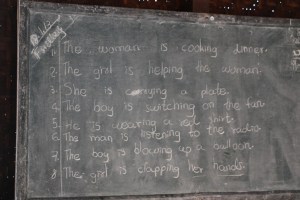 1. The woman is cooking dinner.
2. The girl is helping the woman.
3. She is carrying a plate.
4. The boy is switching on the fan
5. He is wearing a red shirt.
6. The man is listening to the radio
7. The boy is blowing up a balloon
8. The girl is clapping her hands.